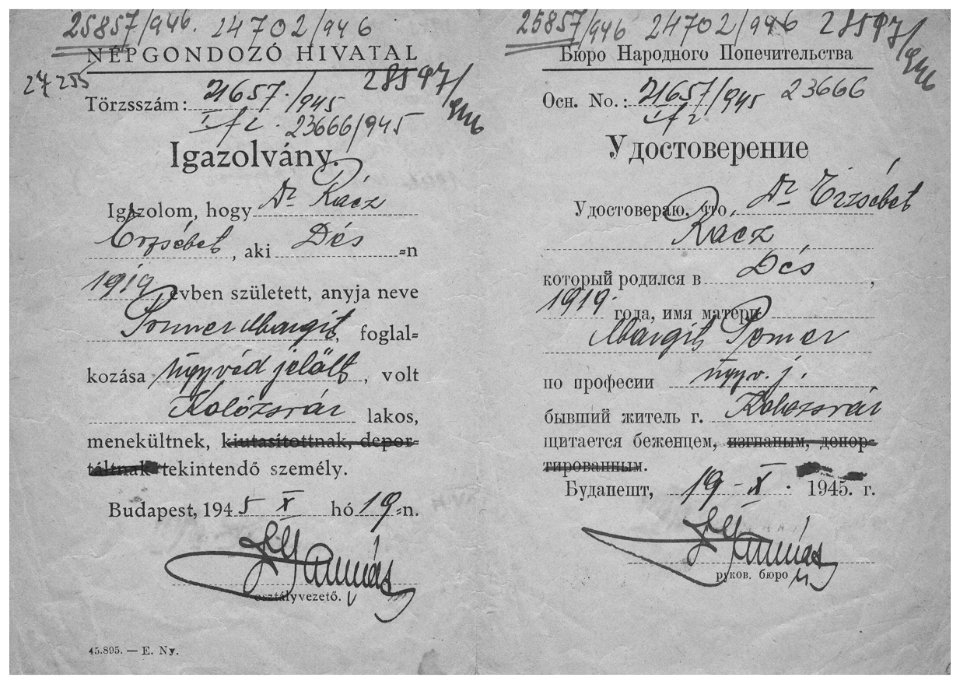 25857/946. 24702/946
NÉPGONDOZÓ HIVATAL
27255
28597/946
Törzsszám: 21657./945
I/f2. 23666/945
Igazolvány.
Igazolom, hogy Dr Rácz
Erzsébet, aki Dés =n
1919 évben született, anyja neve
Pomer Margit, foglal=
kozása ügyvéd jelölt, volt
Kolozsvár lakos,
menekültnek, kiutasítottnak, depor=
táltnak tekintendő személy.
Budapest, 1945 X hó 19=n.
osztályvezető.
45.895. — E. Ny.
25857/946 24702/946 28597/946
Бюро Народного Попечительства
Осн. No.: 21657/945 23666
I/f2
Удостоверение
Удостовераю, что Dr Erzsébet
Rácz
который родился в Dés,
1919. года, имя матери
Margit Pomer
по професии ügyv. j.
бывший житель г. Kolozsvár
щитается беженцем, изгнаным, депор-
тированным.
Будапешт, 19-X. 1945. г.
руков. бюро